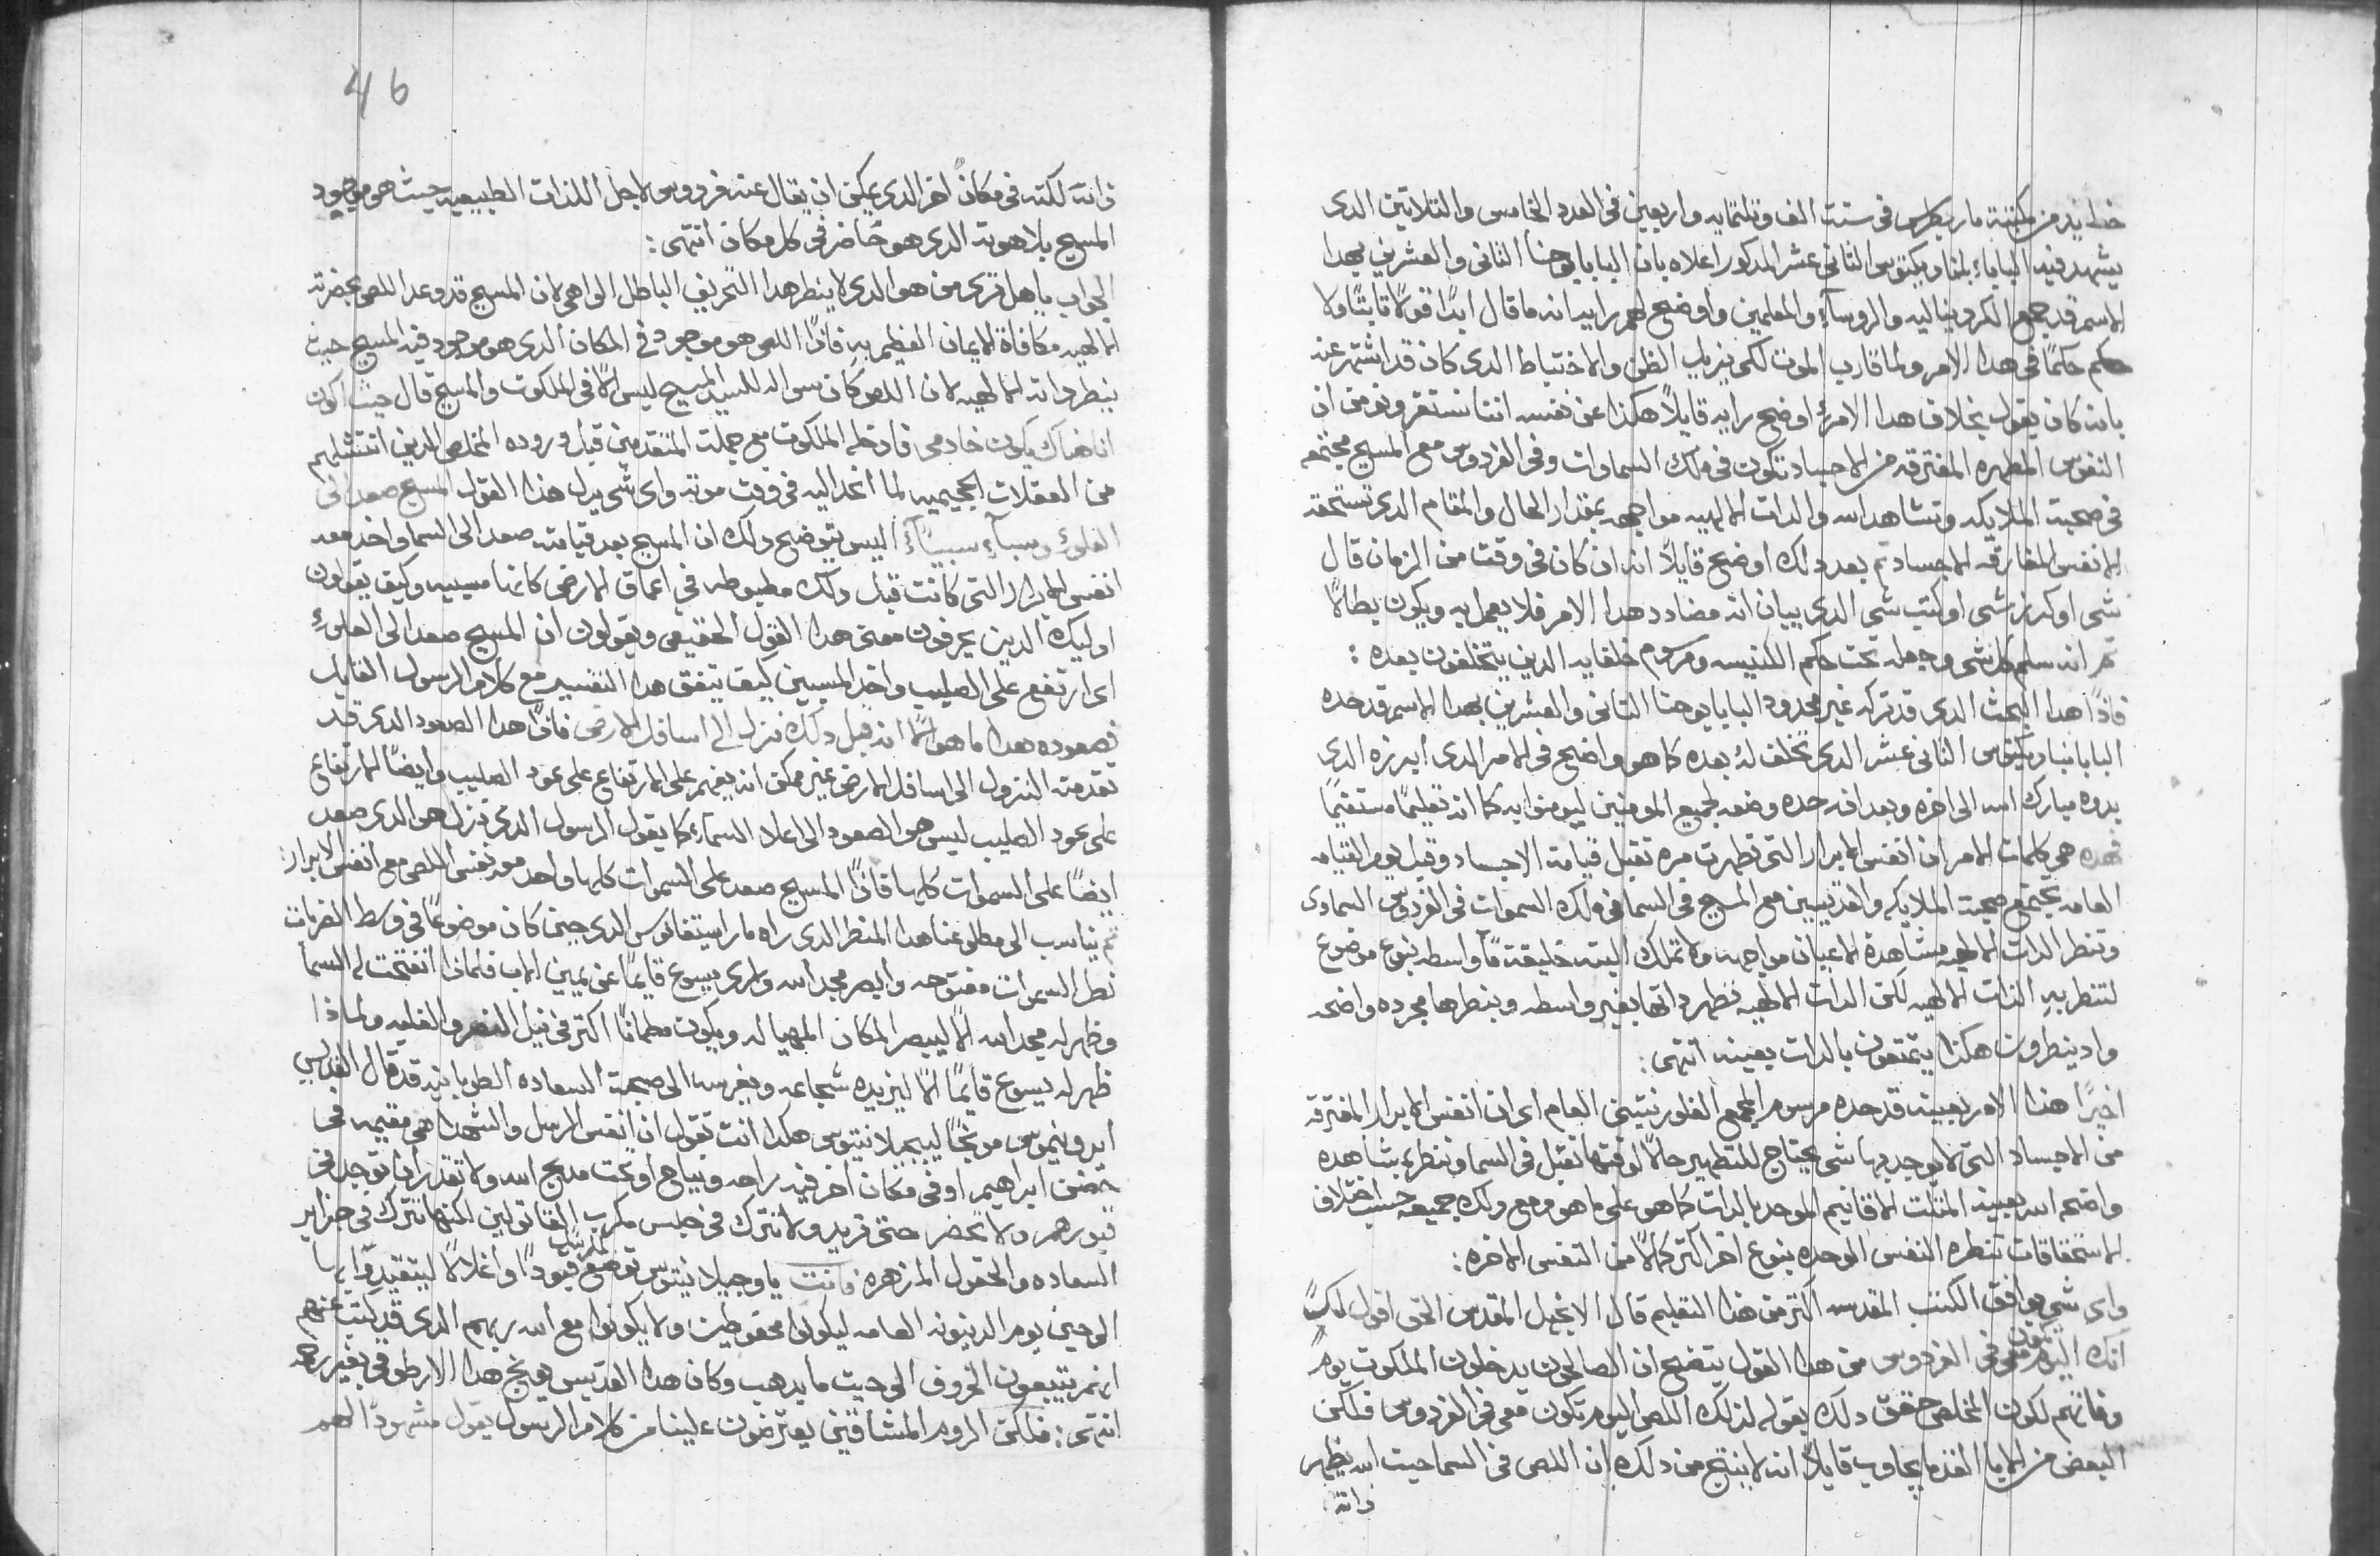 خطايه من كنيسة مار بطرس في سنت الف وتلتمايه واربعين في العدد الخامس والتلاتين الدى
يشهد فيه البابا بناديكتوس التانى عشر المدكور اعلاه بان البابا يوحنا التانى والعشرين بهدا
الاسم قد جمع الكرديناليه والروسآء والمعلمين واوضح لهم رايه انه ما قال ابدًا قولاً تابتًا ولا
حكم حكمًا في هدا الامر ولما قارب الموت لكى يزيل الظن والاختباط الدى كان قد اشتهر عنه
بانه كان يقول بخلاف هدا الامر اوضح رايه قايلاً هكذا عن نفسه اننا نستقر ونومن ان
النفوس المطهره المفترقه من الاجساد تكون في ملك السماوات وفي الفردوس مع المسيح مجتمعه
في صحبة الملايكه وتشاهد الله والدات الالهيه مواجهه بمقدار الحال والمقام الدى تستحقه
الانفس المفارقه الاجساد تم بعد دلك اوضح قايلاً انه ان كان في وقت من الزمان قال
شى او كرز شى او كتب شى الدى يبيان انه مضادد هدا الامر فلا يعمل به ويكون بطالاً
تم انه سلم كل شى وجعله تحت حكم الكنيسه ومرسوم خلفايه الدين يتخلفون بعده :
فاذًا هدا البحث الدى قد تركه غير محدود البابا يوحنا التانى والعشرين بهدا الاسم قد حده
البابا بناديكتوس التانى عشر الدى تخلف له بعده كما هو واضح في الامر الدى ابرزه الدى
بدوه مبارك الله الى اخره وبعد انه حده وضعه لجميع المومنين ليومنوا به كما انه تعليمًا مستقيمًا
فهده هى كلمات الامر ان انفس الابرار التى تطهرت مره تقبل قيامة الاجساد وقبل يوم القيامه
العامه تجتمع صحبة الملايكه والقديسين مع المسيح في السما في ملك السموات في الفردوس السماوى
وتنظر الدات الالهيه مشاهدة الاعيان مواجهه ولا تملك البته خليقة ما واسطه بنوع موضوع
لتنظر به الذات الالهيه لكن الدات الالهيه تظهر داتها بغير واسطه وينظرها مجرده واضحه
واد ينظروت هكذا يتمتعون بالدات بعينه انتهى :
اخيرًا هذا الامر بعينه قد حده مرسوم المجمع الفلورنتينى العام اى ان انفس الابرار المفترقه
من الاجساد التى لا يوجد بها شى يحتاج للتطهير حالاً لوقتها تقبل في السما وتنظر بشاهده
واضحه الله بعينه المتلت الاقانيم الموحد بالدات كما هو على ما هو ومع دلك جميعه حسب اختلاف
الاستحقاقات تنظره النفس الوحده بنوع اخر اكتر كمالاً من النفس الاخره :
واى شى يوافق الكتب المقدسه اكتر من هدا التعليم قال الانجيل المقدس الحق اقول لك
انك اليوم تكون معى في الفردوس من هدا القول يتضح ان الصالحون يدخلون الملكوت يوم
وفاتهم لكون المخلص حقق دلك بقوله لذلك اللص اليوم تكون معى في الفردوس فلكن
البعض من الابا القدما يجاوب قايلاً انه لا ينتج من دلك ان اللص في السما حيت الله يظهر
داته
46
ذاته لكنه في مكان اخر الدى يمكن ان يقال عنه فردوس لاجل اللذات الطبيعيه حيث هو موجود
المسيح بلاهوته الدى هو حاضر في كل مكان انتهى :
الجواب ياهل ترى من هو الدى لا ينظر هدا التحريف الباطل الواهى لان المسيح قد وعد اللص بحضرته
الالهيه مكافاة الايمان العظيم به فاذًا اللص هو موجود في المكان الدى هو موجود فيه المسيح حيث
ينظر داته الالهيه لان اللص كان سواله للسيد المسيح ليس الا في الملكوت والمسيح قال حيث اكون
انا هناك يكون خادمى فادخله الملكوت مع جملت المتقدمين قبل وروده المخلص الدين انتشلهم
من العقلات الجحيميه لما انحدر اليه في وقت موته واى شى يدل هذا القول المسيح صعد الى
العلو وسبآ سبيآء اليس يتوضح دلك ان المسيح بعد قيامته صعد الى السما واخد معه
انفس الابرار التى كانت قبل دلك مظبوطه في اعماق الارض كانها مسبيه وكيف يقولون
اوليك الدين يحرفون معنى هدا القول الحقيقى ويقولون ان المسيح صعد الى العلو
اى ارتفع على الصليب واخد المسبيين كيف يتفق هدا التفسير مع كلام الرسول القايل
فصعوده هدا ما هو الا انه قبل دلك نزل الى اسافل الارض فاذًا هدا الصعود الدى قد
تقدمته النزول الى اسافل الارض غير ممكن انه يفهم على الارتفاع على عود الصليب وايضًا الارتفاع
على عود الصليب ليس هو الصعود الى اعلا السمآء كما يقول الرسول الدى نزل هو الدى صعد
ايضًا على السموات كلها فاذًا المسيح صعد على السموات كلها واخد معه نفس اللص مع انفس الابرار :
تم يناسب الى مطلوعنا هدا المنظر الدى راه مار استفانوس الدى حين كان موضوعًا في وسط الضربات
نظر السموات مفتوحه وابصر مجد الله وراى يسوع قايمًا عن يمين الاب فلماذا انفتحت له السما
وظهر له مجد الله الا ليبصر المكان المهيا له ويكون مطمانًا اكتر في نيل النصر والغلبه ولماذا
ظهر له يسوع قايمًا الا ليزيده شجاعه ويغرسه الى صحبة السعاده الطوبانيه قد قال القديس
ايرونيموس موبخًا ليبجيلانتيوس هكدا انت تقول ان انفس الرسل والشهدا هى مقيمه في
حضن ابراهيم او في مكان اخر فيه راحه ونياح او تحت مدبح الله ولا تقدر ان توجد في
قبورهم ولا تحضر حتى تريد ولا تترك في حبس مكرب القاتولين لكنها تترك في جزاير
السعاده والحقول المزهره فانت ياوجيلانتيوس توضع للرسل قيودًا واغلالاً ليتقيدوا بها
الى حين يوم الدينونه العامه ليكونوا محفوظين ولا يكونوا مع الله ربهم الدى قد كتب عنهم
انهم يتبعون الخروف الى حيت ما يدهب وكان هدا القديس يوبخ هدا الارطوقى بغير رحمه
انتهى : فلكن الروم المنشاقين يعترضون علينا من كلام الرسول يقول مشهودًا لهم